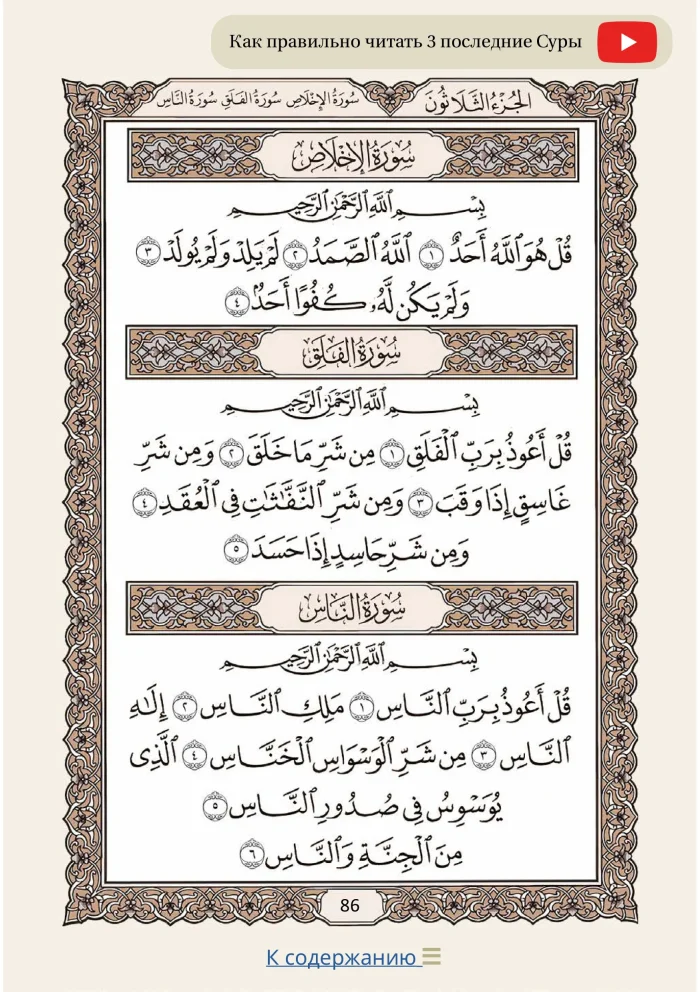 Как правильно читать 3 последние Суры
الجُزْءُ الثَّلَاثُونَ
سُورَةُ الإِخْلَاصِ سُورَةُ الفَلَقِ سُورَةُ النَّاسِ
سُورَةُ الإِخْلَاصِ
بِسْمِ ٱللَّهِ ٱلرَّحْمَٰنِ ٱلرَّحِيمِ
قُلْ هُوَ ٱللَّهُ أَحَدٌ ١ ٱللَّهُ ٱلصَّمَدُ ٢ لَمْ يَلِدْ وَلَمْ يُولَدْ ٣
وَلَمْ يَكُن لَّهُۥ كُفُوًا أَحَدٌۢ ٤
سُورَةُ الفَلَقِ
بِسْمِ ٱللَّهِ ٱلرَّحْمَٰنِ ٱلرَّحِيمِ
قُلْ أَعُوذُ بِرَبِّ ٱلْفَلَقِ ١ مِن شَرِّ مَا خَلَقَ ٢ وَمِن شَرِّ
غَاسِقٍ إِذَا وَقَبَ ٣ وَمِن شَرِّ ٱلنَّفَّٰثَٰتِ فِى ٱلْعُقَدِ ٤
وَمِن شَرِّ حَاسِدٍ إِذَا حَسَدَ ٥
سُورَةُ النَّاسِ
بِسْمِ ٱللَّهِ ٱلرَّحْمَٰنِ ٱلرَّحِيمِ
قُلْ أَعُوذُ بِرَبِّ ٱلنَّاسِ ١ مَلِكِ ٱلنَّاسِ ٢ إِلَٰهِ
ٱلنَّاسِ ٣ مِن شَرِّ ٱلْوَسْوَاسِ ٱلْخَنَّاسِ ٤ ٱلَّذِى
يُوَسْوِسُ فِى صُدُورِ ٱلنَّاسِ ٥
مِنَ ٱلْجِنَّةِ وَٱلنَّاسِ ٦
86
К содержанию